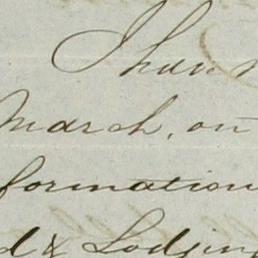 I have
March, on
formation
d & Lodging